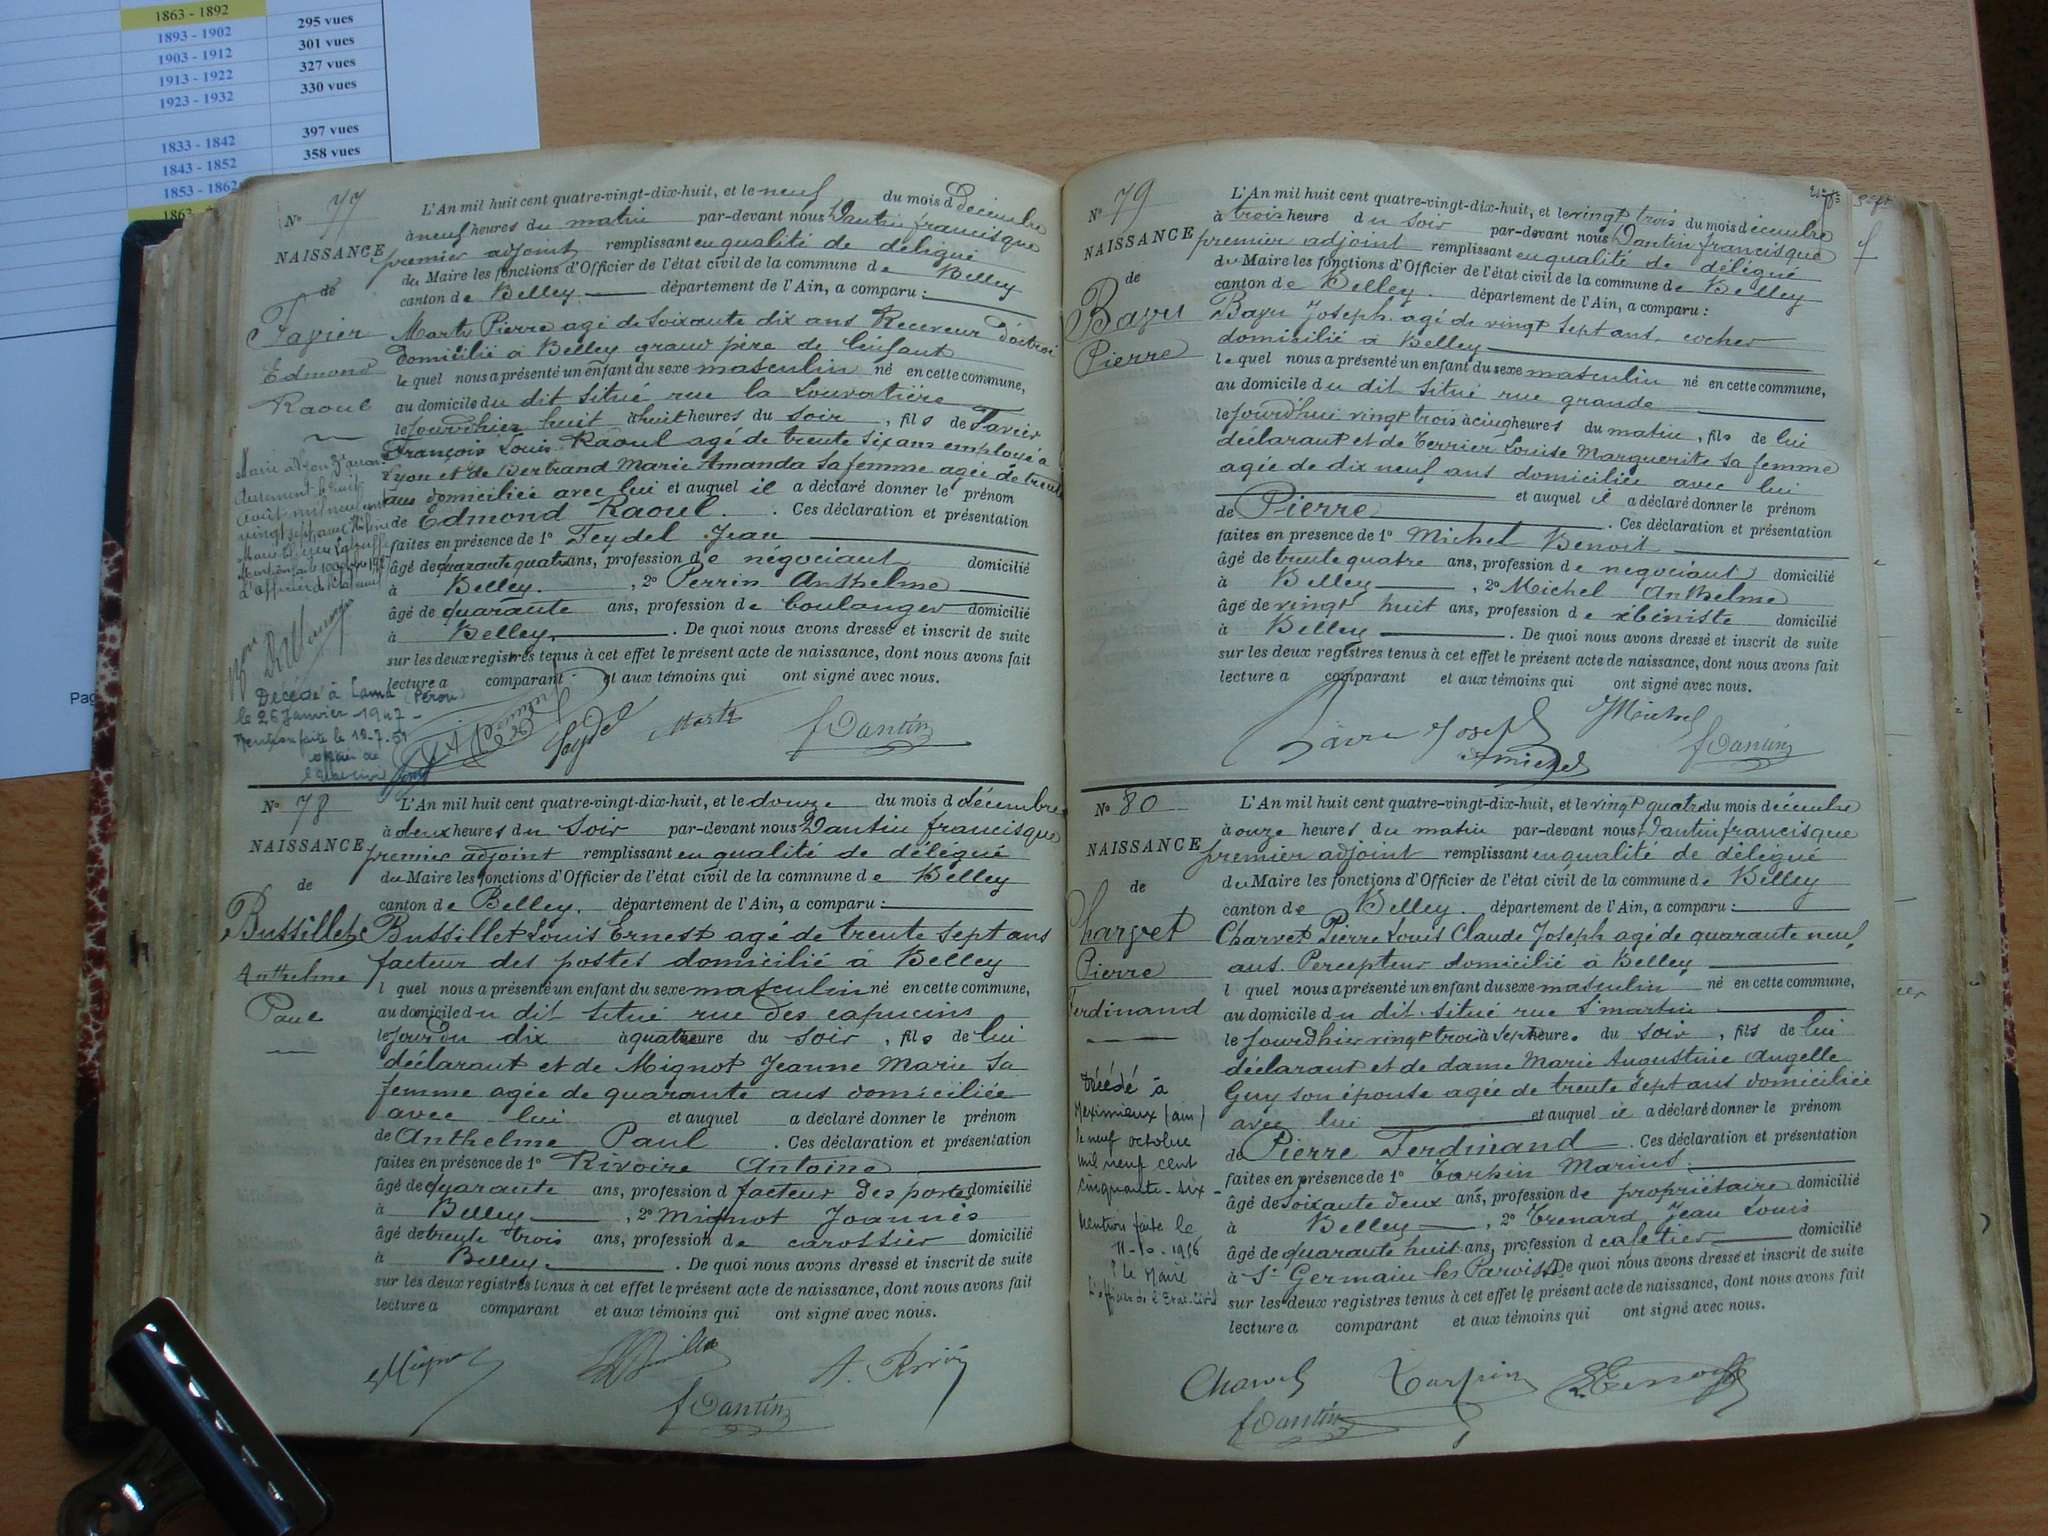 1863 - 1892
1893 - 1902 295 vues
1903 - 1912 301 vues
1913 - 1922 327 vues
1923 - 1932 330 vues
1833 - 1842 397 vues
1843 - 1852 358 vues
1853 - 1862
1863
Pag
N° 77 L'An mil huit cent quatre-vingt-dix-huit, et le neuf du mois d Décembre
à neuf heures du matin par-devant nous Dantin francisque
NAISSANCE premier adjoint remplissant en qualité de délégué
du Maire les fonctions d'Officier de l'état civil de la commune de Belley
de canton de Belley département de l'Ain, a comparu :
Favier Marty Pierre agé de Soixante dix ans Receveur d'octroi
Domicilié à Belley grand père de l'enfant
Edmond le quel nous a présenté un enfant du sexe masculin né en cette commune,
Raoul au domicile du dit situé rue la Louvatière
le jourd'hier huit à huit heures du soir, fils de Favier
François Louis Raoul agé de trente six ans employé à
Lyon et de Bertrand Marie Amanda sa femme agée de trente
ans domiciliée avec lui et auquel il a déclaré donner le prénom
de Edmond Raoul. Ces déclaration et présentation
faites en présence de 1° Feydel Jean
âgé de quarante quatre ans, profession de négociant domicilié
à Belley, 2° Perrin Anthelme
âgé de quarante ans, profession de boulanger domicilié
à Belley. De quoi nous avons dressé et inscrit de suite
sur les deux registres tenus à cet effet le présent acte de naissance, dont nous avons fait
lecture a comparant et aux témoins qui ont signé avec nous.
Marié à Lyon 3e
août mil neuf cent
vingt sept avec
Décédé à Lima (Pérou)
le 26 Janvier 1947
Mention faite le 18-7-51
Feydel Marty f Dantin
N° 78 L'An mil huit cent quatre-vingt-dix-huit, et le douze du mois d décembre
à deux heures du soir par-devant nous Dantin francisque
NAISSANCE premier adjoint remplissant en qualité de délégué
du Maire les fonctions d'Officier de l'état civil de la commune de Belley
de canton de Belley. département de l'Ain, a comparu :
Bussillet Bussillet Louis Ernest agé de trente sept ans
Anthelme facteur des postes domicilié à Belley
l quel nous a présenté un enfant du sexe masculin né en cette commune,
Paul au domicile du dit situé rue des capucins
le jour du dix à quatre heure du soir, fils de lui
déclarant et de Mignot Jeanne Marie sa
femme agée de quarante ans domiciliée
avec lui et auquel a déclaré donner le prénom
de Anthelme Paul. Ces déclaration et présentation
faites en présence de 1° Rivoire Antoine
âgé de quarante ans, profession d facteur des postes domicilié
à Belley, 2° Mignot Joannès
âgé de trente trois ans, profession de carossier domicilié
à Belley. De quoi nous avons dressé et inscrit de suite
sur les deux registres tenus à cet effet le présent acte de naissance, dont nous avons fait
lecture a comparant et aux témoins qui ont signé avec nous.
Mignot
f Dantin
N° 79 L'An mil huit cent quatre-vingt-dix-huit, et le vingt trois du mois décembre
à trois heure du soir par-devant nous Dantin francisque
NAISSANCE premier adjoint remplissant en qualité de délégué
du Maire les fonctions d'Officier de l'état civil de la commune de Belley
de canton de Belley. département de l'Ain, a comparu :
Bayu Bayu Joseph agé de vingt sept ans, cocher
Pierre domicilié à Belley
le quel nous a présenté un enfant du sexe masculin né en cette commune,
au domicile du dit situé rue grande
le jourd'hui vingt trois à cinq heures du matin, fils de lui
déclarant et de Terrier Louise Marguerite sa femme
agée de dix neuf ans domiciliée avec lui
et auquel il a déclaré donner le prénom
de Pierre. Ces déclaration et présentation
faites en presence de 1° Michel Benoit
âgé de trente quatre ans, profession de négociant domicilié
à Belley, 2° Michel Anthelme
âgé de vingt huit ans, profession de ébéniste domicilié
à Belley. De quoi nous avons dressé et inscrit de suite
sur les deux registres tenus à cet effet le présent acte de naissance, dont nous avons fait
lecture a comparant et aux témoins qui ont signé avec nous.
Joseph Michel
A michel f Dantin
N° 80 L'An mil huit cent quatre-vingt-dix-huit, et le vingt quatre du mois décembre
à onze heures du matin par-devant nous Dantin francisque
NAISSANCE premier adjoint remplissant en qualité de délégué
du Maire les fonctions d'Officier de l'état civil de la commune de Belley
de canton de Belley. département de l'Ain, a comparu :
Charvet Charvet Pierre Louis Claude Joseph agé de quarante neuf
Pierre ans. Percepteur domicilié à Belley
l quel nous a présenté un enfant du sexe masculin né en cette commune,
Ferdinand au domicile du dit situé rue St martin
le jourd'hier vingt trois à sept heure. du soir, fils de lui
déclarant et de dame Marie Augustine Angelle
Guy son épouse agée de trente sept ans domiciliée
avec lui et auquel il a déclaré donner le prénom
de Pierre Ferdinand. Ces déclaration et présentation
faites en présence de 1° Tarpin Marius.
âgé de Soixante deux ans, profession de propriétaire domicilié
à Belley, 2° Trenard Jean Louis
âgé de quarante huit ans, profession d cafetier domicilié
à St Germain les Paroisses De quoi nous avons dressé et inscrit de suite
sur les deux registres tenus à cet effet le présent acte de naissance, dont nous avons fait
lecture a comparant et aux témoins qui ont signé avec nous.
Décédé à
Meximieux (ain)
le neuf octobre
mil neuf cent
cinquante-six -
Mention faite le
11-10-1956
P le Maire
l'officier de l'Etat-Civil
Charvet Tarpin
f Dantin